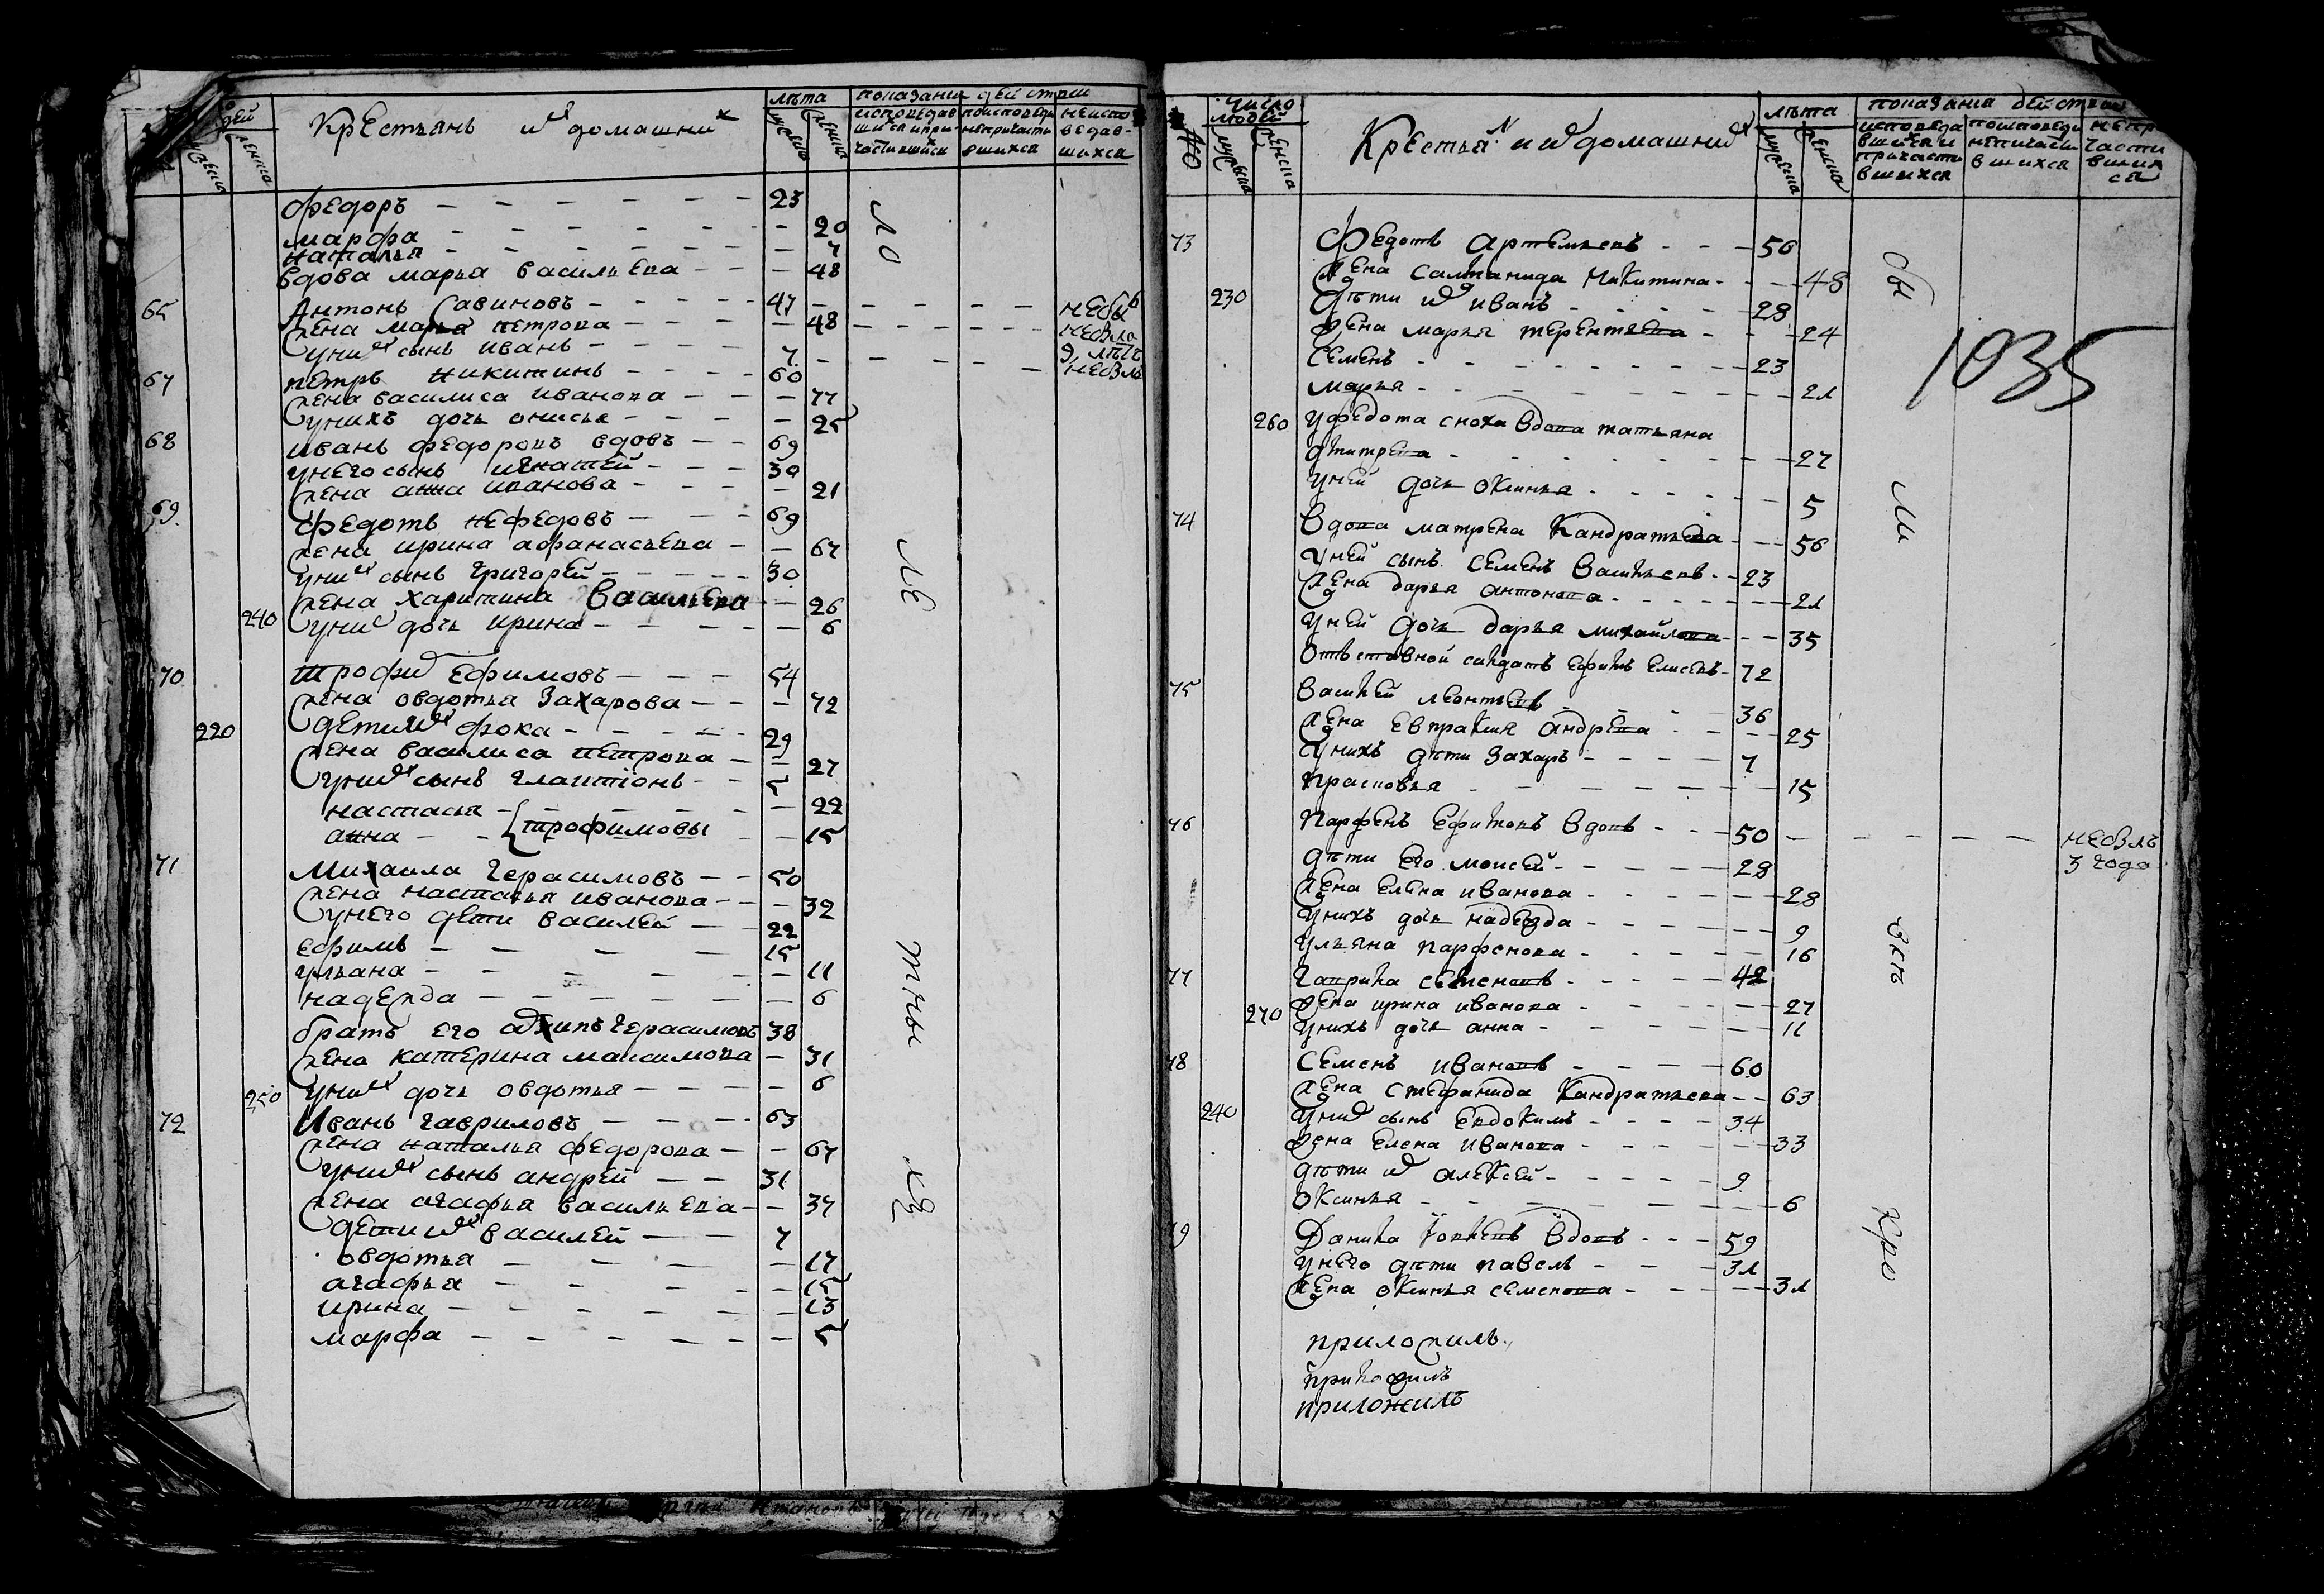 дей
мужеска
женска
Крестьянъ ихъ домашнихъ
лѣта
мужеска
женска
показании действи
исповедав
шихся и при
частившихся
поисповеди
непричасти
вшихся
неиспо
ведав-
шихся
Федоръ — 23
марфа — 20
наталья — 7
вдова марья васильева — 48
65 Антонъ Савиновъ — 47
жена марья петрова — 48
уних сынъ иванъ — 7
небы
9 лѣтъ
67 петръ никитинъ — 60
жена василиса иванова — 77
унихъ дочь онисья — 25
68 иванъ федоровъ вдовъ — 69
унего сынъ игнатей — 30
жена анна иванова — 21
69 федотъ нефедовъ — 69
жена ирина афанасьева — 67
уних сынъ григорей — 30
жена харитина васильева — 26
240 уних дочь ирина — 6
70 трофим ефимовъ — 54
жена овдотья захарова — 72
220 дети их фока — 29
жена василиса петрова — 27
уних сынъ глатионъ — 5
настасья — 22
анна — трофимовы — 15
71 Михаила герасимовъ — 50
жена настасья иванова — 32
унего дети василей — 22
ефимъ — 15
ульана — 11
надежда — 6
братъ его архипъ герасимовъ 38
жена катерина максимова — 31
250 уних дочь овдотья — 6
72 Иванъ гавриловъ — 63
жена наталья федорова — 67
уних сынъ андрей — 31
жена агафья васильева — 37
дети их василей — 7
овдотья — 17
агафья — 15
ирина — 13
марфа — 5
ло
ле
тны
число
людей
мужеска
женска
Крестьян и их домашних
лѣта
мужеска
женска
показания действи
исповеда
вшихся и
причасти
вшихся
поисповеди
непричасти
вшихся
непр
части
вших
ся
73 Федотъ Артемьевъ — 56
жена Салманида Микитина — 48
230 дѣти их иванъ — 28
жена марья терентьева — 24
Семенъ — 23
марья — 21
1035
260 уфедота сноха вдова татьяна
дмитрева — 27
уней дочь оксинья — 5
74 Вдова матрена Кандратьева — 56
уней сынъ Семенъ Васильевъ — 23
жена дарья антонова — 21
уней дочь дарья михайлова — 35
Отставной салдатъ Ефимъ Елисевъ — 72
75 Василей леонтьевъ — 36
жена Евпраксия Андрева — 25
унихъ дѣти Захаръ — 7
Прасковья — 15
76 Парфенъ Ефимовъ вдовъ — 50
3 года
дѣти его моисей — 28
жена Елена иванова — 28
унихъ дочь надежда — 9
ульяна парфенова — 16
77 Гаврила семеновъ — 42
жена ирина иванова — 27
270 унихъ дочь анна — 11
78 Семенъ ивановъ — 60
жена Стефанида Кандратьева — 63
240 уних сынъ Евдокимъ — 34
жена Елена иванова — 33
дѣти их алексей — 9
оксинья — 6
79 Данила вдовъ — 59
унего дѣти павелъ — 31
жена оксинья семенова — 31
приложилъ
приложилъ
приложилъ
бы
ли